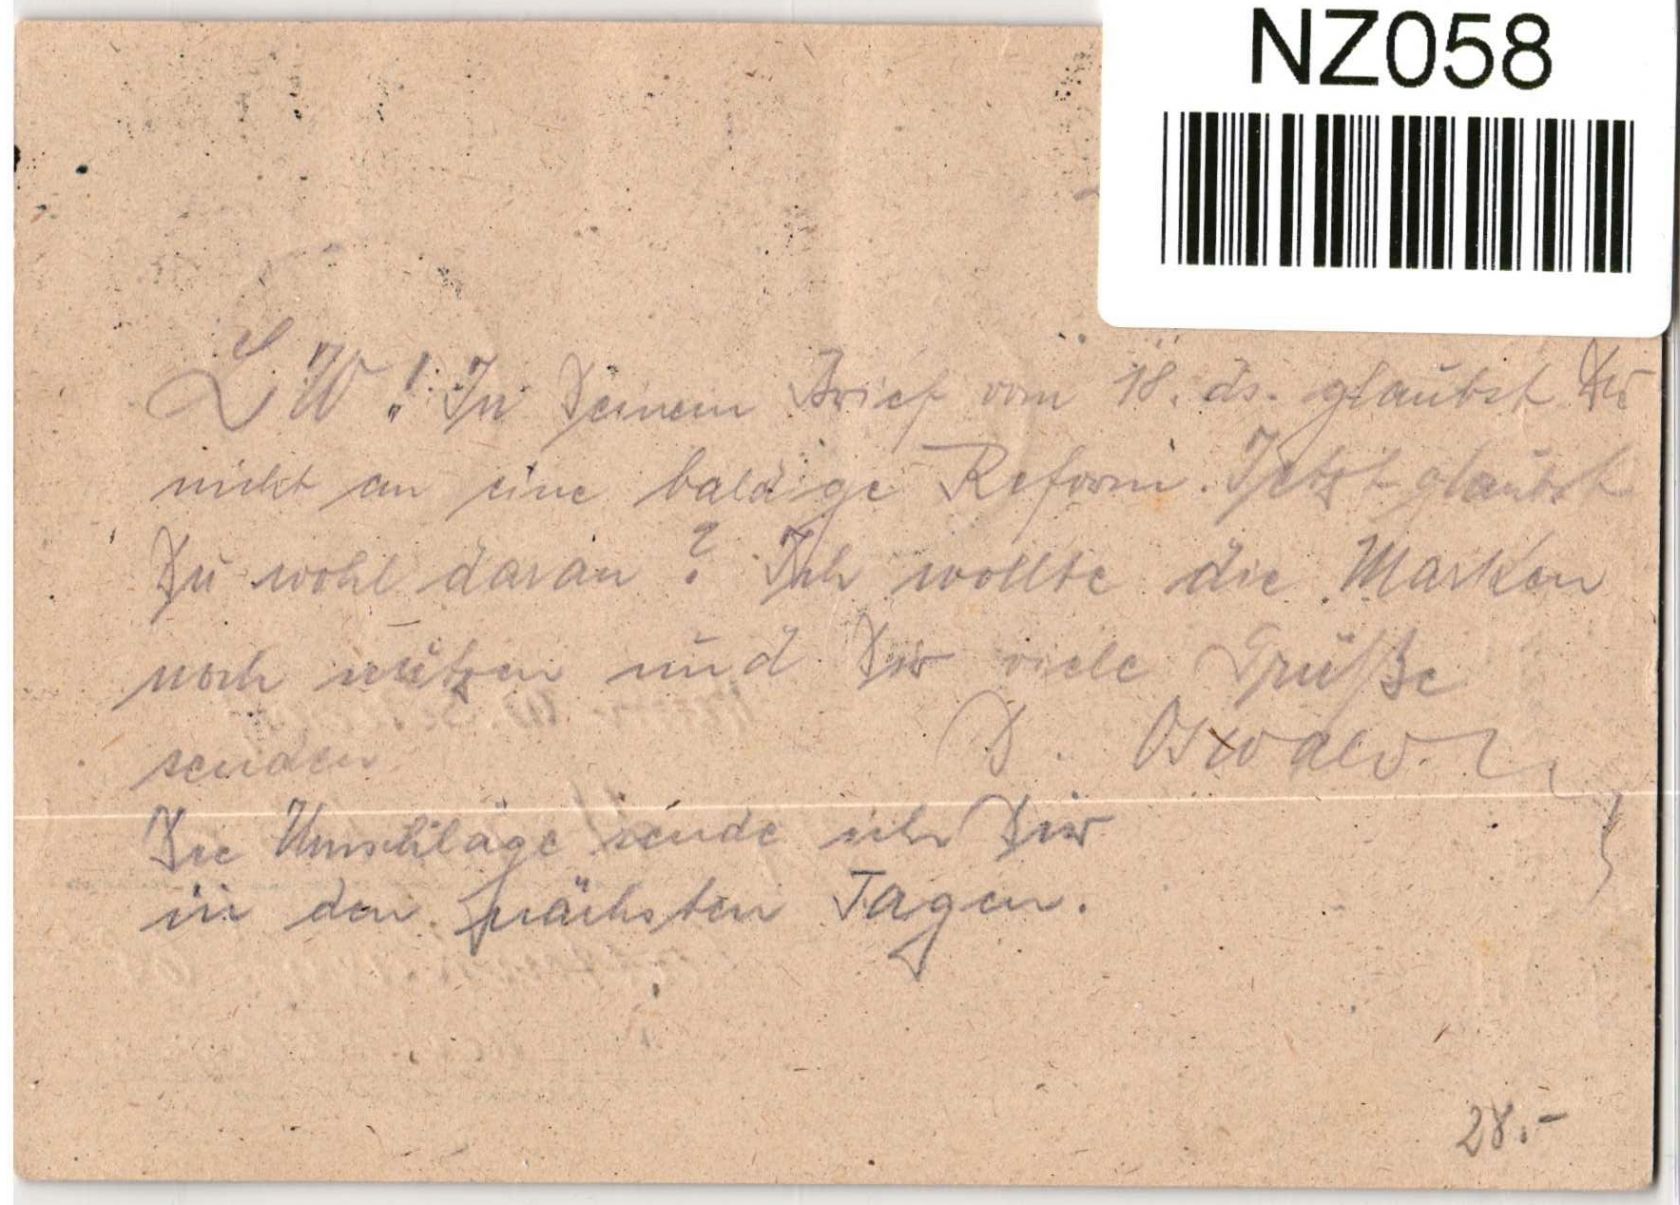 NZ058
L. W.! In Deinem Brief vom 18. ds. glaubst Du
nicht an eine baldige Reform. Jetzt glaubst
Du wohl daran? Ich wollte die Marken
noch nützen und Dir viele Grüße
senden D. Oswald.
Die Umschläge sende ich Dir
in den nächsten Tagen.
28.-